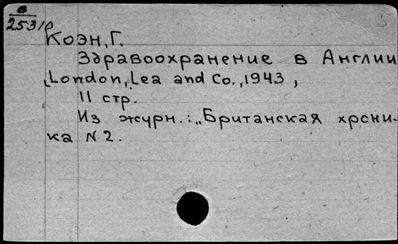 в
2531
Коэн, Г.
Здравоохранение в Англии
London, Lea and Co., 1943,
11 стр.
Из журн.: „Британская хрони-
ка N 2.